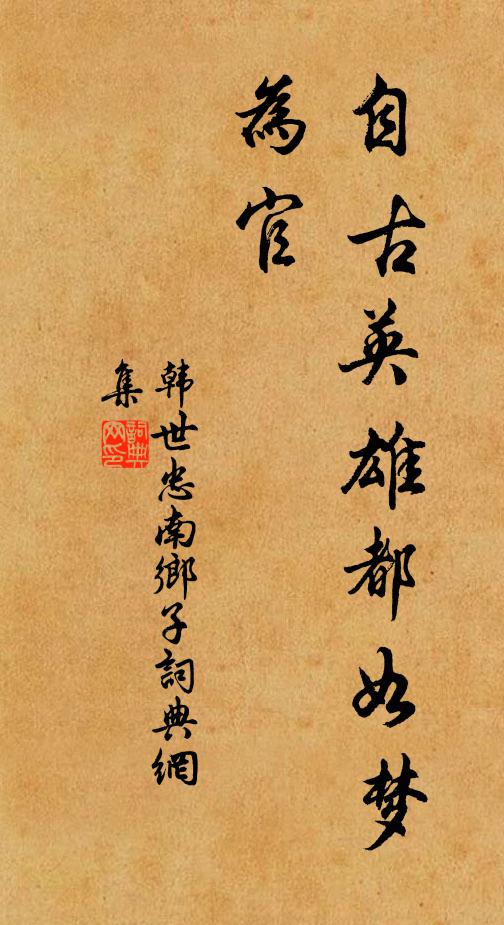 自古英雄都如梦
為官
韩世忠南鄉子詞典網
集
詞典网印